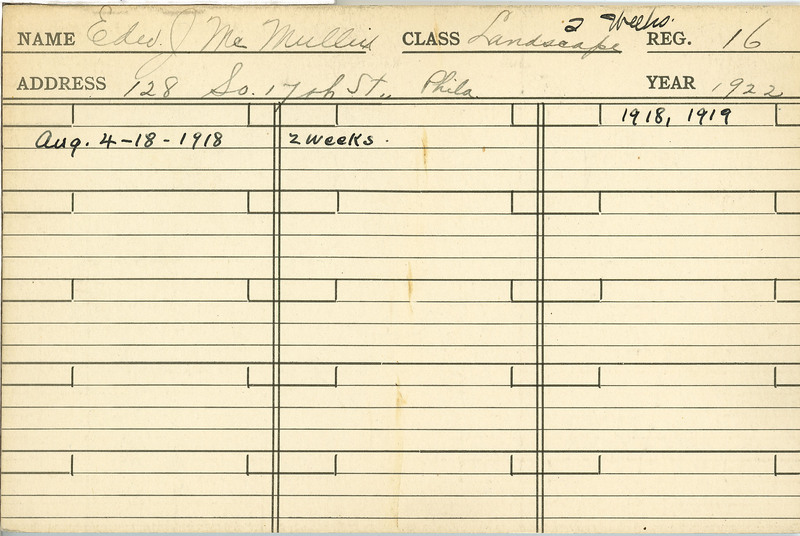 2 Weeks.
NAME Edw. J Mc Mullin CLASS Landscape REG. 16
ADDRESS 128 So. 17th St., Phila. YEAR 1922
1918, 1919
Aug. 4-18-1918 2 weeks.